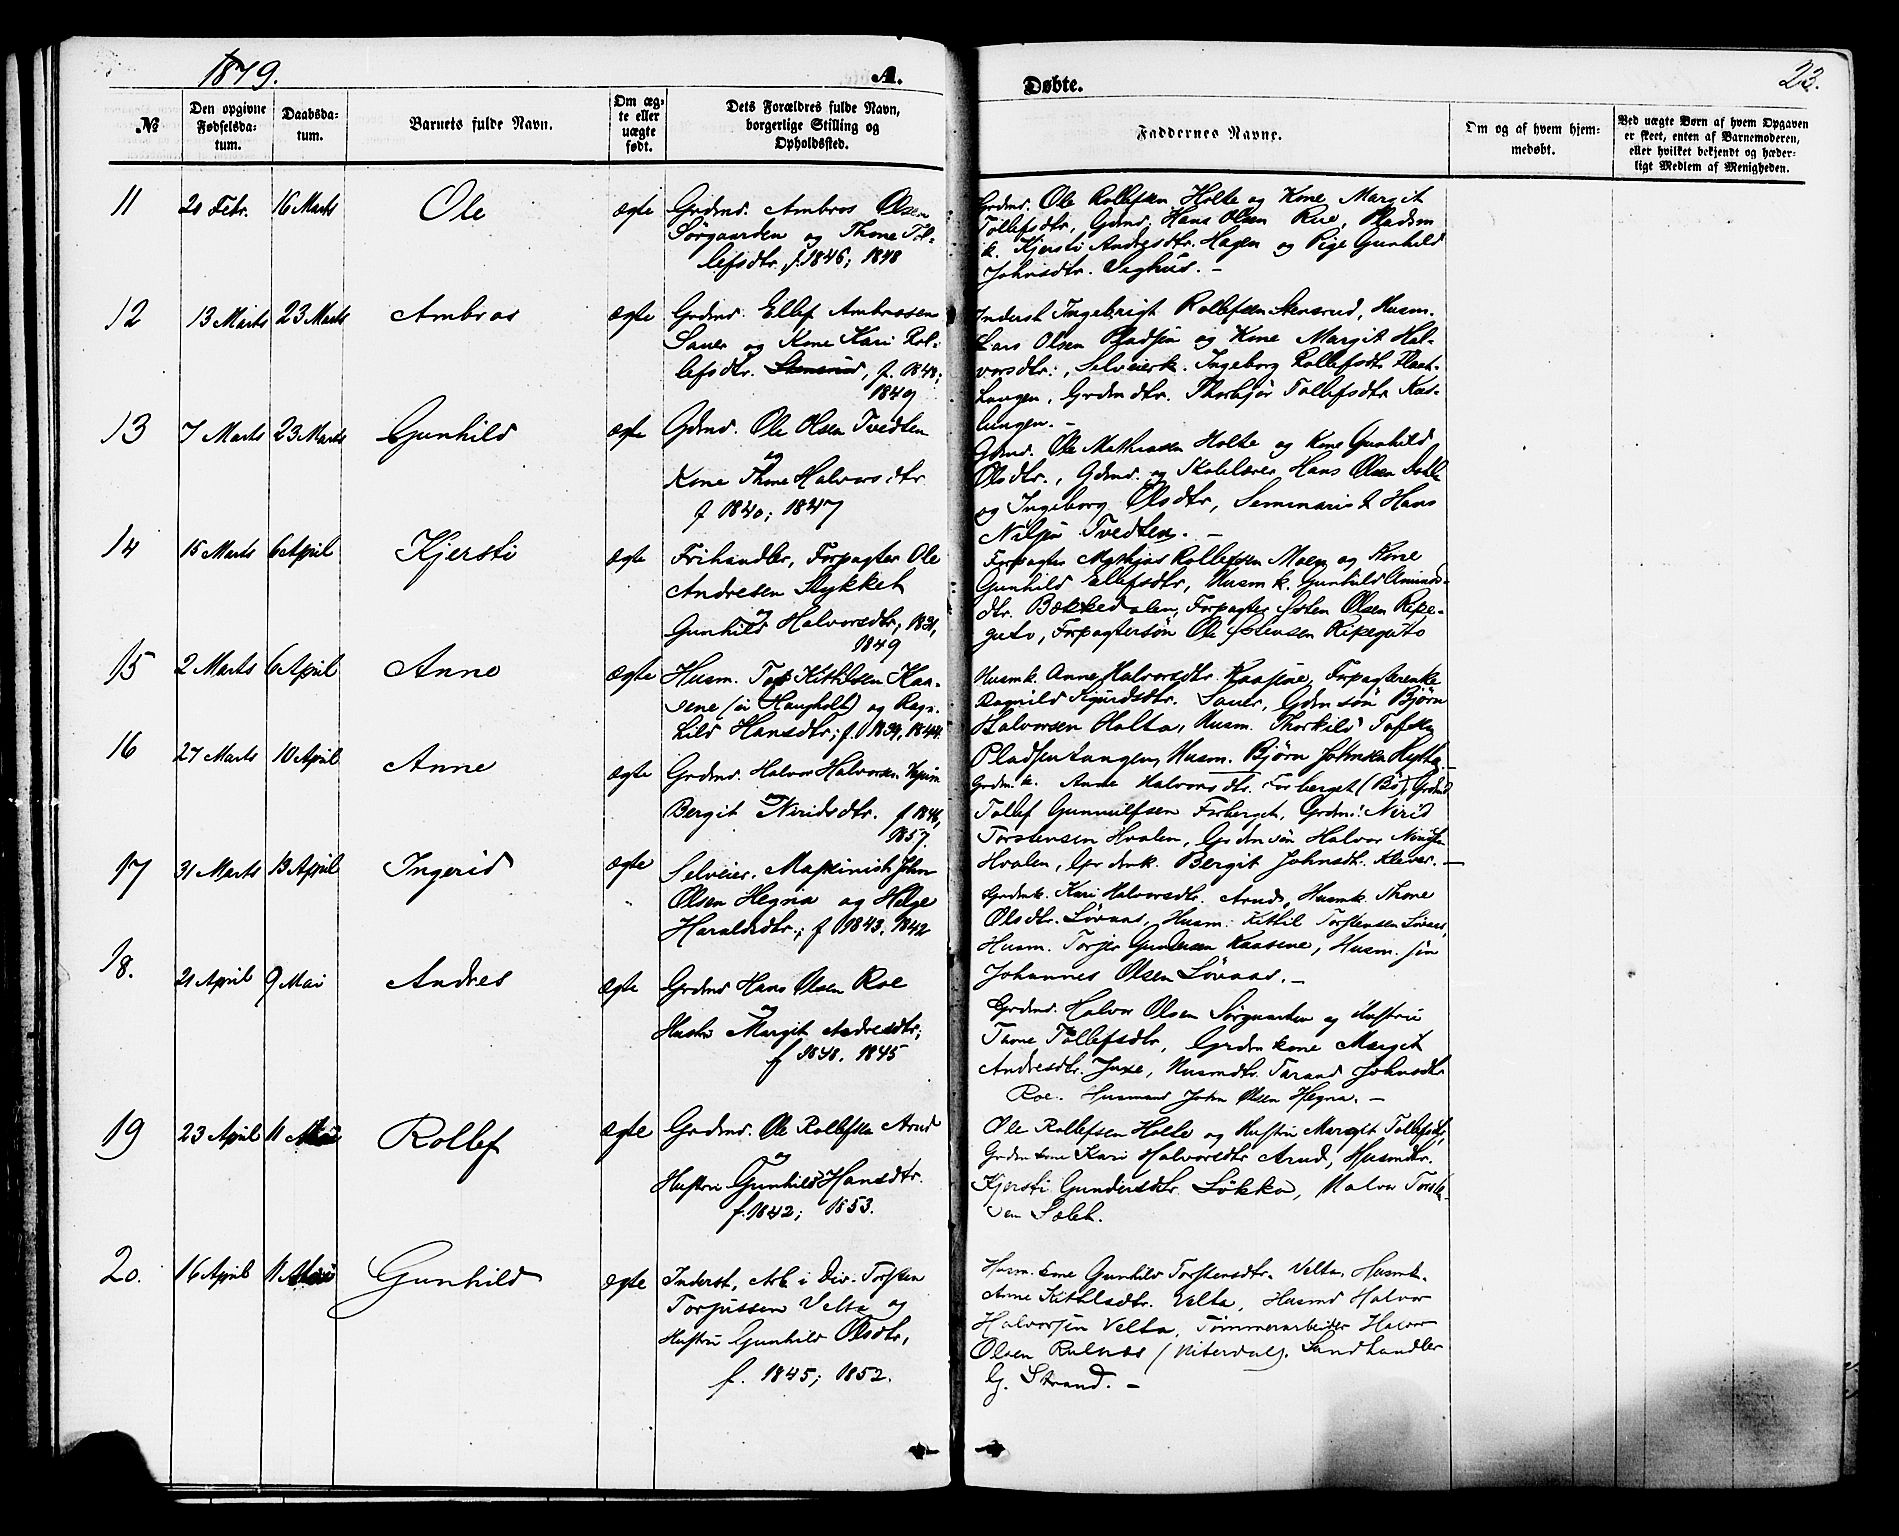 1879.
A.
Døbte.
23.
№
Den opgivne
Fødselsda-
tum.
Daabsda-
tum.
Barnets fulde Navn.
Om æg-
te eller
uægte
født.
Dets Forældres fulde Navn,
borgerlige Stilling og
Opholdssted.
Faddernes Navne.
Om og af hvem hjem-
medøbt.
Ved uægte Børn af hvem Opgaven
er skeet, enten af Barnemoderen,
eller hvilket bekjendt og hæder-
ligt Medlem af Menigheden.
11
20 Febr.
16 Marts
Ole
ægte
Grdmd. Ambros Olsen
Sørgaarden og Thone Tol-
lefsdtr. f. 1846; 1848
Grdmd. Ole Rollefsen Holte og Kone Margit
Tollefsdtr, Gdmd. Hans Olsen Rue, Pladsm
k. Kjersti Andresdtr. Hagen og Pige Gunhild
Johnsdtr. Seghus. –
12
13 Marts
23 Marts
Ambros
ægte
Grdmd. Ellef Ambrossen
Sauer og Kone Kari Rol-
lefsdtr. f. 1848;
1849
Inderst Ingebrigt Rollefsen Stensrud, Husm.
Lars Olsen Pladsen og Kone Margit Hal-
vorsdtr., Selveierk. Ingeborg Rollefsdtr.
Grdmdtr. Thorbjør Tollefsdtr.
lungen. –
13
7 Marts
23 Marts
Gunhild
ægte
Gdmd. Ole Olsen Tvedten
og
Kone Thone Halvorsdtr.
f 1840; 1847
Gdmd. Ole Mathiasen Holte og Kone Gunhild
Olsdtr., Gdmd. og Skolelærer Hans Olsen
og Ingeborg Olsdtr, Seminarist Hans
Nilsen Tvedten. –
14
15 Marts
6 April
Kjersti
ægte
Frihandler, Forpagter Ole
Andresen Stykket
og
Gunhild Halvorsdtr, 1831,
1849
Forpagter Mathias Rollefsen Moen og Kone
Gunhild Ellefsdtr, Husmk. Gunhild Amunds-
dtr. Bekkedalen, Forpagter Sosten Olsen Ripe-
guto, Forpagtersøn Ole Sostensen Ripeguto
15
2 Marts
6 April
Anne
ægte
Husm. Kittilsen Kaa-
sene (Haugholt) og Ragn-
hild Hansdtr; f. 1839, 1844.
Husmk. Anne Halvorsdtr. Kaasene, Forpagterenke
Ragnild Sigurdsdtr. Sauer, Gdm søn Bjørn
Halvorsen Holta, Husm. Thorkild
Pladsentangen, Husm. Bjørn Johnsen
16
27 Marts
10 April
Anne
ægte
Grdmd. Halvor Halvorsen
og
Bergit Niridsdtr. f 1846,
1857.
Grdm.k. Anne Halvorsdtr. Forberget (Bø), Grdmd
Tollef Gunnulfsen Forberget, Grdmd. Nirid
Torstensen Hvalen, Grdm søn Halvor
Hvalen, Grdmk. Bergit Johnsdtr. Klever. –
17
31 Marts
13 April
Ingerid
ægte
Selveier. Maskinist John
Olsen Hegna og Helge
Haraldsdtr.; f 1843, 1842
Grdmk. Kari Halvorsdtr. Arnd, Husmk. Thone
Olsdtr. Løvaas, Husm. Kittil Torstensen Løvaas,
Husm. Torjer Gundersen Kaasene, Husm. søn
Johannes Olsen Løvaas. –
18.
21 April
9 Mai
Andres
ægte
Grdmd Hans Olsen Roe
og
Hustru Margit Andresdtr;
f 1848. 1845
Grdmd. Halvor Olsen Sørgaarden og Hustru
Thone Tollefsdtr, Grdmkone Margit
Andresdtr. Juve, Husmdtr. Tarand Johnsdtr
Roe. Husmand John Olsen Hegna. –
19
23 April
11 Mai
Rollef
ægte
Grdmd. Ole Rollefsen Arnd
og
Hustru Gunhild Hansdtr.
f. 1842; 1853.
Ole Rollefsen Holte og Hustru Margit Tollefsdtr,
Grdmkone Kari Halvorsdtr Arnd, Husmdtr.
Kjersti Gundersdtr. Løkka, Halvor Torste-
sen
20.
16 April
11 Mai
Gunhild
ægte
Inderst, Arb. i Div. Torsten
Torjussen Velta og
Hustru Gunhild Olsdtr,
f. 1845; 1852.
Husm. kone Gunhild Torstensdtr. Velta, Husmk.
Anne Kittilsdtr. Velta, Husmd Halvor
Halvorsen Velta, Tømmerarbeider Halvor
Olsen Rulnæs (Hiterdal), Landhandler
G. Strand. –